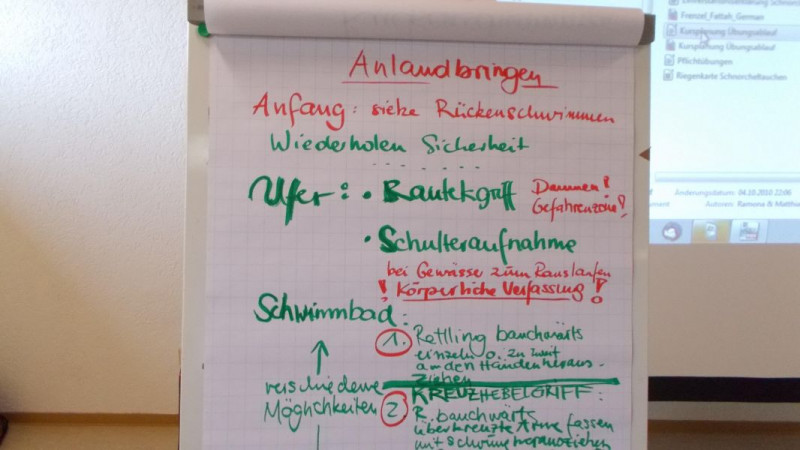 Anlandbringen
Anfang: siehe Rückenschwimmen
Wiederholen Sicherheit
Ufer: • Rautekgriff Daumen! Gefahrenzone!
• Schulteraufnahme
bei Gewässe zum Rauslaufen
! Körperliche Verfassung !
Schwimmbad:
1. Rettling bauchwärts
einzeln o. zu zweit
an den Händen heraus-
ziehen
verschiedene
Möglichkeiten
KREUZHEBELGRIFF:
2 R. bauchwärts
überkreuzte Arme fassen
mit schwung herausziehen
Frenzel_Fattah_German
Kursplanung Übungsablauf
Kursplanung Übungsablauf
Pflichtübungen
Riegenkarte Schnorcheltauchen
Änderungsdatum: 04.10.2010 22:06
Autoren: Ramona & Matthia